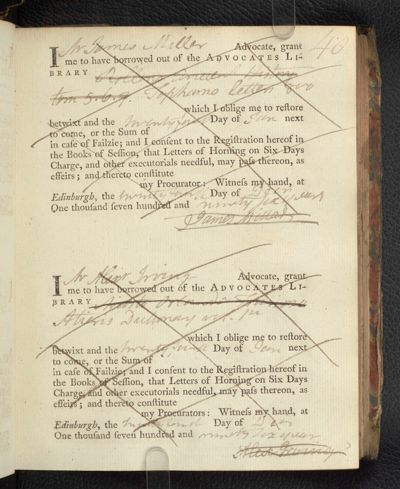 40
I Mr James Miller Advocate, grant
me to have borrowed out of the ADVOCATES LI-
BRARY
tom 5. 6. 9. Stephano
which I oblige me to reſtore
betwixt and the twenty Day of Jan next
to come, or the Sum of
in caſe of Failzie; and I conſent to the Regiſtration hereof in
the Books of Seſſion, that Letters of Horning on Six Days
Charge, and other executorials needful, may paſs thereon, as
effeirs; and thereto conſtitute
my Procurator: Witneſs my hand, at
Edinburgh, the twenty Day of
One thouſand ſeven hundred and ninety six years
James Miller
I Mr Alexr Irving Advocate, grant
me to have borrowed out of the ADVOCATES LI-
BRARY
Dictionary
which I oblige me to reſtore
betwixt and the twenty Day of Jan next
to come, or the Sum of
in caſe of Failzie; and I conſent to the Regiſtration hereof in
the Books of Seſſion, that Letters of Horning on Six Days
Charge, and other executorials needful, may paſs thereon, as
effeirs; and thereto conſtitute
my Procurators: Witneſs my hand, at
Edinburgh, the Day of Decr
One thouſand ſeven hundred and ninety six years
Alexr Irving